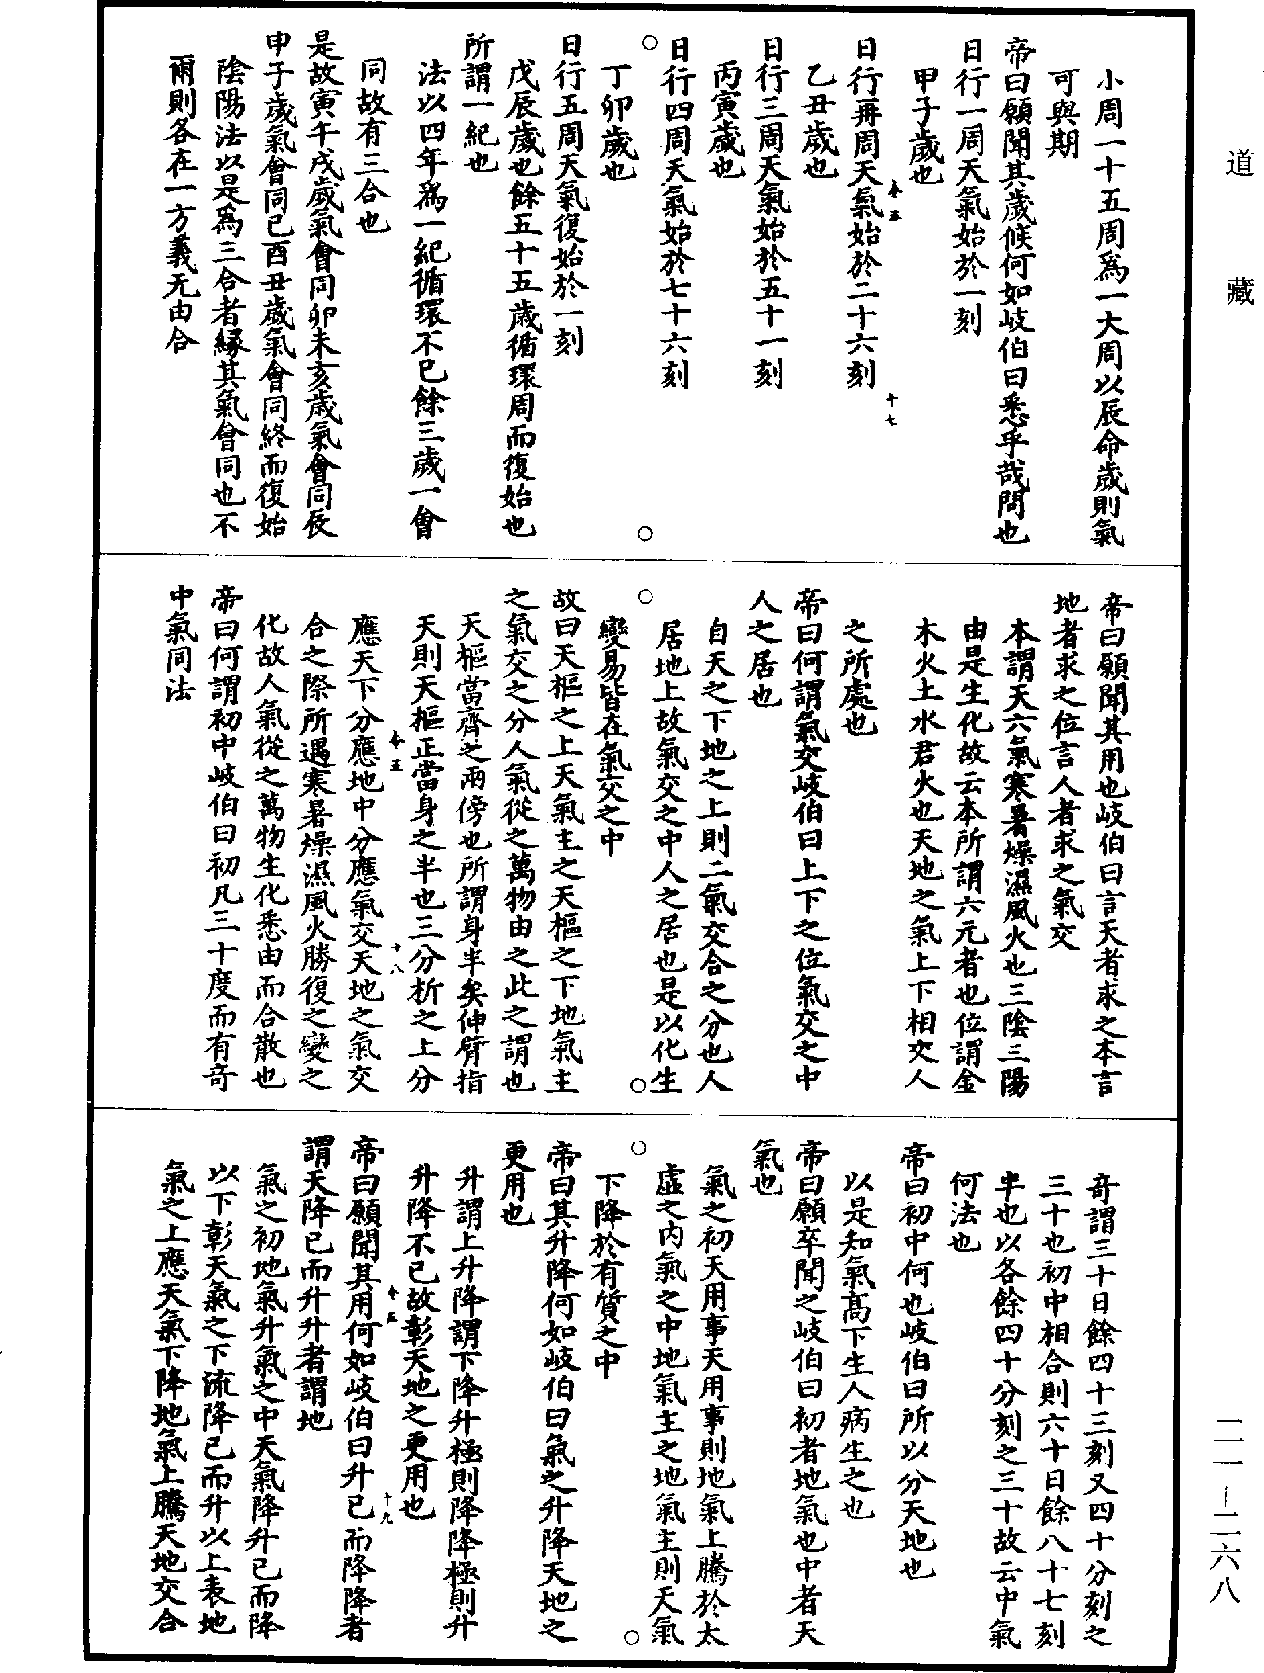 道藏
小周一十五周爲一大周以辰命歲則氣
可與期
帝曰願聞其歲候何如岐伯曰悉乎哉問也
日行一周天氣始於一刻
甲子歲也
日行再周天氣始於二十六刻
乙丑歲也
日行三周天氣始於五十一刻
丙寅歲也
日行四周天氣始於七十六刻
丁卯歲也
日行五周天氣復始於一刻
戊辰歲也餘五十五歲循環周而復始也
所謂一紀也
法以四年爲一紀循環不已餘三歲一會
同故有三合也
是故寅午戌歲氣會同卯未亥歲氣會同辰
申子歲氣會同巳酉丑歲氣會同終而復始
陰陽法以是爲三合者緣其氣會同也不
爾則各在一方義无由合
帝曰願聞其用也岐伯曰言天者求之本言
地者求之位言人者求之氣交
本謂天六氣寒暑燥濕風火也三陰三陽
由是生化故云本所謂六元者也位謂金
木火土水君火也天地之氣上下相交人
之所處也
帝曰何謂氣交岐伯曰上下之位氣交之中
人之居也
自天之下地之上則二氣交合之分也人
居地上故氣交之中人之居也是以化生
變易皆在氣交之中
故曰天樞之上天氣主之天樞之下地氣主
之氣交之分人氣從之萬物由之此之謂也
天樞當齊之兩傍也所謂身半矣伸臂指
天則天樞正當身之半也三分折之上分
應天下分應地中分應氣交天地之氣交
合之際所遇寒暑燥濕風火勝復之變之
化故人氣從之萬物生化悉由而合散也
帝曰何謂初中岐伯曰初凡三十度而有奇
中氣同法
奇謂三十日餘四十三刻又四十分刻之
三十也初中相合則六十日餘八十七刻
半也以各餘四十分刻之三十故云中氣
何法也
帝曰初中何也岐伯曰所以分天地也
以是知氣高下生人病生之也
帝曰願卒聞之岐伯曰初者地氣也中者天
氣也
氣之初天用事天用事則地氣上騰於太
虛之內氣之中地氣主之地氣主則天氣
下降於有質之中
帝曰其升降何如岐伯曰氣之升降天地之
更用也
升謂上升降謂下降升極則降降極則升
升降不已故彰天地之更用也
帝曰願聞其用何如岐伯曰升已而降降者
謂天降已而升升者謂地
氣之初地氣升氣之中天氣降升已而降
以下彰天氣之下流降已而升以上表地
氣之上應天氣下降地氣上騰天地交合
卷五
十七
卷五
十八
卷五
十九
二一—二六八